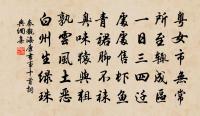 粵女市無常
所至輒成區
一日三四遷
處處售蝦魚
青裙腳不襪
臭味猿與狙
孰雲風土惡
白州生綠珠
秦觀海康書事十首詞
典網集